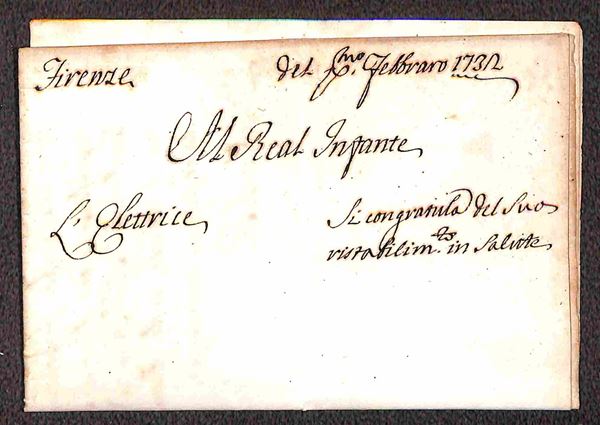 Firenze del Pmo. Febbraro 1732
Al Real Infante
L'Elettrice
Si congratula del Suo
ristabilimto. in Salute